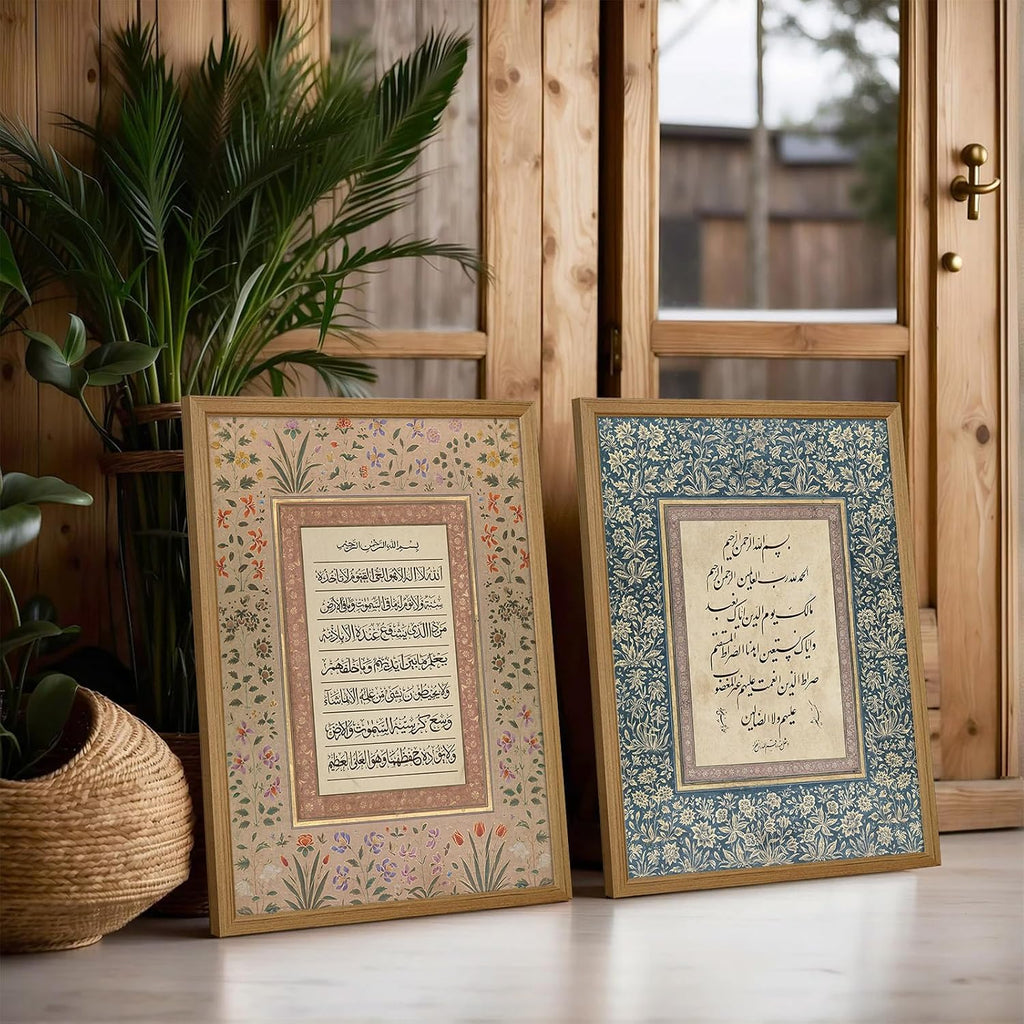 بسم الله الرحمن الرحيم
الله لا اله الا هو الحي القيوم لا تاخذه
سنة ولا نوم له ما في السموت وما في الارض
من ذا الذي يشفع عنده الا باذنه
يعلم ما بين ايديهم وما خلفهم
ولا يحيطون بشئ من علمه الا بماشاء
وسع كرسيه السموت والارض
ولا يؤده حفظهما وهو العلي العظيم
بسم الله الرحمن الرحيم
الحمد لله رب العالمين الرحمن الرحيم
مالك يوم الدين اياك نعبد
واياك نستعين اهدنا الصراط المستقيم
صراط الذين انعمت عليهم غير المغضوب
عليهم ولا الضالين